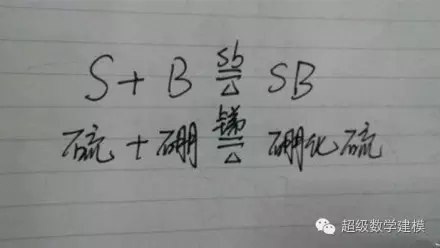 S + B \xlongequal[△]{Sb} SB
硫 + 硼 \xlongequal[△]{锑} 硼化硫
超级数学建模